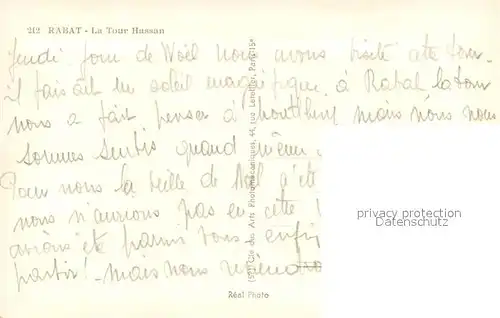 212 RABAT - La Tour Hassan
Jeudi jour de Noël nous avons visité cette tour.
il faisait un soleil magnifique, à Rabat la tour
nous a fait penser à mais nous nous
sommes sentis quand même
Pour nous la veille de Noël
nous n'aurions pas eu cette !
avions été parmi vous enfin
partir! - Mais nous
(52) Cie des Arts Photomécaniques, 44, rue Letellier, Paris-15e
Réal Photo
privacy protection
Datenschutz